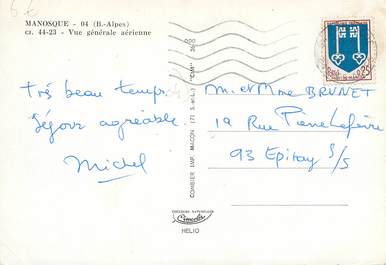 5 €
MANOSQUE - 04 (B.-Alpes)
cz. 44-23 - Vue générale aérienne
Très beau temps.
Séjour agréable
Michel
COMBIER IMP. MACON (71 S.-et-L.) "CIM"
COULEURS NATURELLES
HELIO
0,25
M. et Mme BRUNET
19 Rue Pierre Lefèvre
93 Epinay S/S